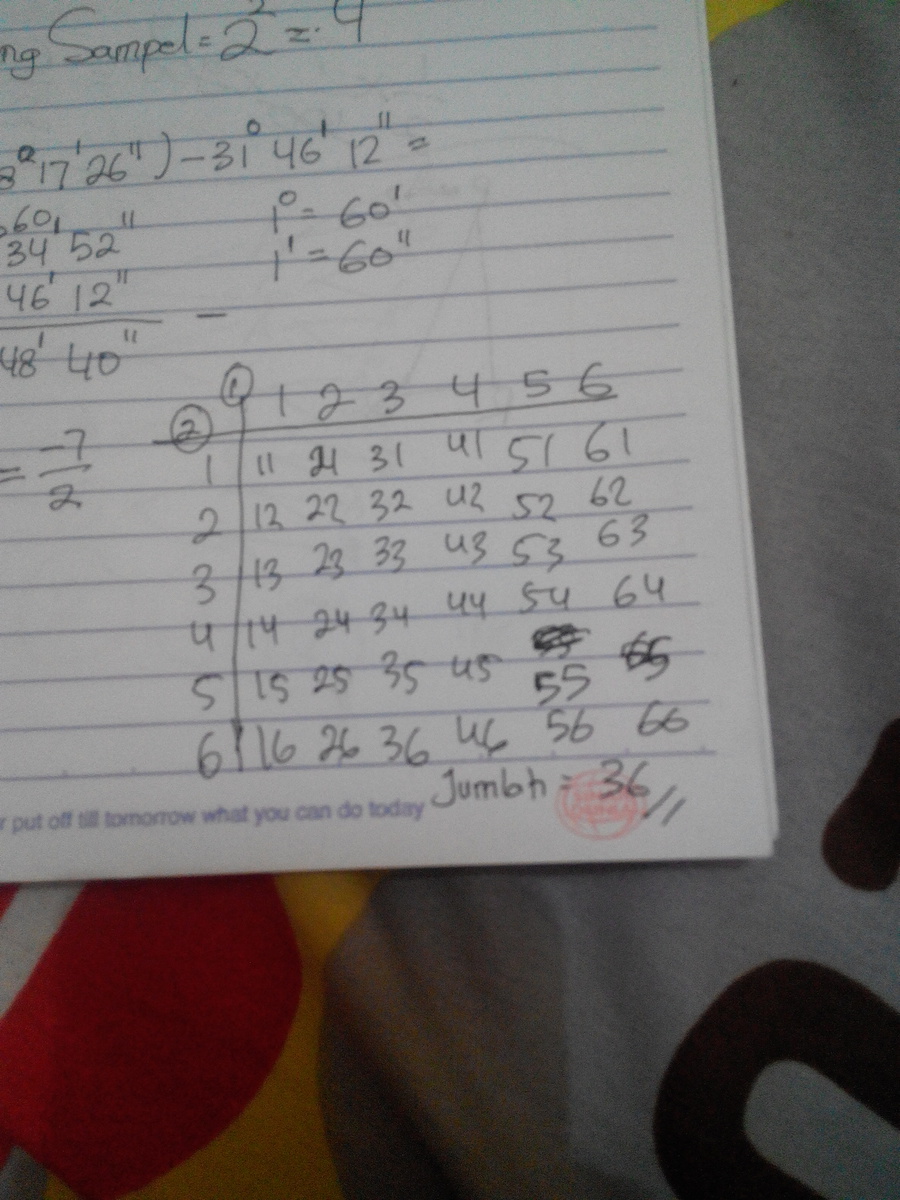 ng Sampel = 2² = 4
8° 17' 26") - 31° 46' 12" =
60
34' 52" 1° = 60'
46' 12" 1' = 60"
48' 40" -
① 1 2 3 4 5 6
②
= -7/2
1 11 21 31 41 51 61
2 12 22 32 42 52 62
3 13 23 33 43 53 63
4 14 24 34 44 54 64
5 15 25 35 45 55 65
6 16 26 36 46 56 66
Jumlah = 36 //
r put off till tomorrow what you can do today